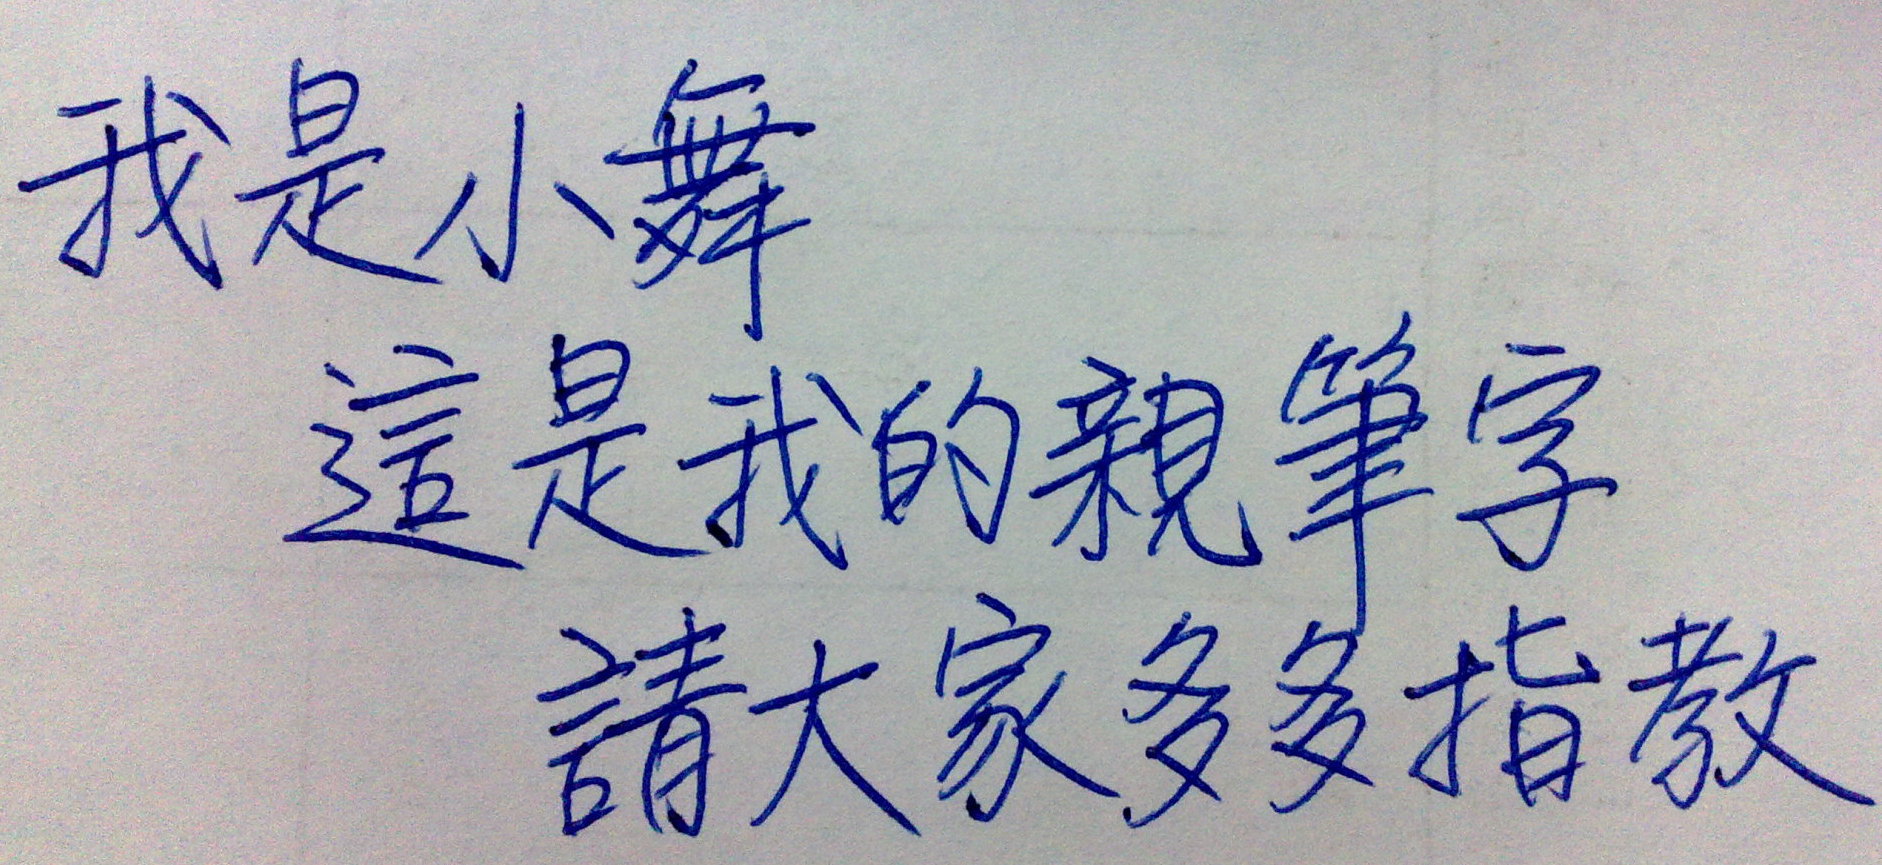 我是小舞
這是我的親筆字
請大家多多指教